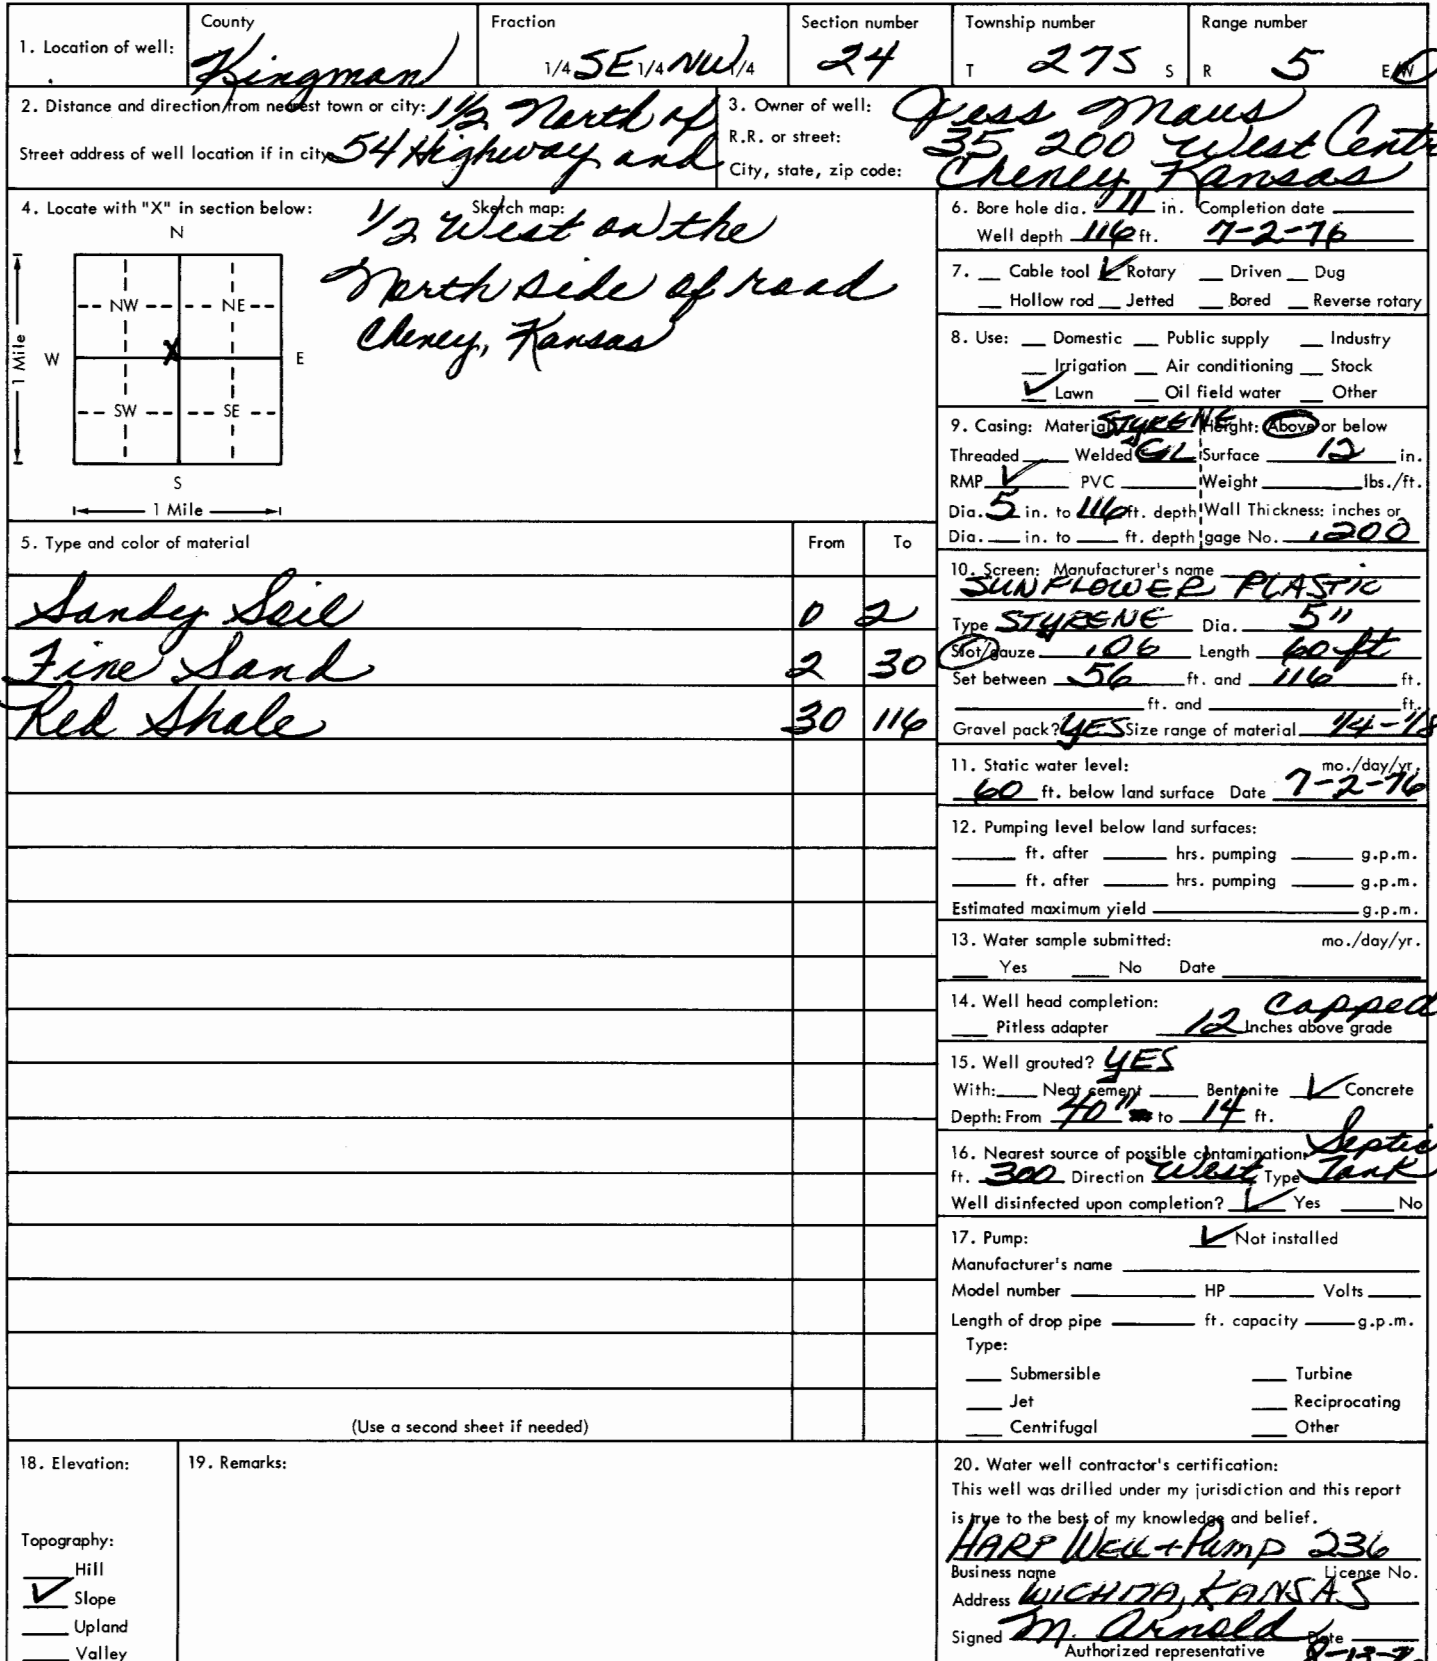 1. Location of well: County Kingman Fraction 1/4 SE 1/4 NW 1/4 Section number 24 Township number T 27S S Range number R 5 E/W
2. Distance and direction from nearest town or city: 1 1/2 North of
Street address of well location if in city: 54 Highway and
3. Owner of well: Jess Maus
R.R. or street: 35 200 West Centr
City, state, zip code: Cheney, Kansas
4. Locate with "X" in section below: Sketch map:
1/2 West on the
North side of road
Cheney, Kansas
N
NW NE
W X E
SW SE
S
1 Mile
1 Mile
5. Type and color of material From To
Sandy Soil 0 2
Fine Sand 2 30
Red Shale 30 116
(Use a second sheet if needed)
6. Bore hole dia. 11 in. Completion date
Well depth 116 ft. 7-2-76
7. Cable tool ✓ Rotary Driven Dug
Hollow rod Jetted Bored Reverse rotary
8. Use: Domestic Public supply Industry
Irrigation Air conditioning Stock
✓ Lawn Oil field water Other
9. Casing: Material STYRENE Height: Above or below
Threaded Welded GL Surface 12 in.
RMP ✓ PVC Weight lbs./ft.
Dia. 5 in. to 116 ft. depth Wall Thickness: inches or
Dia. in. to ft. depth gage No. .200
10. Screen: Manufacturer's name
SUNFLOWER PLASTIC
Type STYRENE Dia. 5"
Slot/gauze .06 Length 60 ft
Set between 56 ft. and 116 ft.
ft. and ft.
Gravel pack? YES Size range of material 1/4-1/8
11. Static water level: mo./day/yr.
60 ft. below land surface Date 7-2-76
12. Pumping level below land surfaces:
ft. after hrs. pumping g.p.m.
ft. after hrs. pumping g.p.m.
Estimated maximum yield g.p.m.
13. Water sample submitted: mo./day/yr.
Yes No Date
14. Well head completion: Capped
Pitless adapter 12 Inches above grade
15. Well grouted? YES
With: Neat cement Bentonite ✓ Concrete
Depth: From 40" to 14 ft.
16. Nearest source of possible contamination: Septic
ft. 300 Direction West Type Tank
Well disinfected upon completion? ✓ Yes No
17. Pump: ✓ Not installed
Manufacturer's name
Model number HP Volts
Length of drop pipe ft. capacity g.p.m.
Type:
Submersible Turbine
Jet Reciprocating
Centrifugal Other
18. Elevation:
Topography:
Hill
✓ Slope
Upland
Valley
19. Remarks:
20. Water well contractor's certification:
This well was drilled under my jurisdiction and this report
is true to the best of my knowledge and belief.
HARP WELL + PUMP 236
Business name License No.
Address WICHITA, KANSAS
Signed M. Arnold Date
Authorized representative